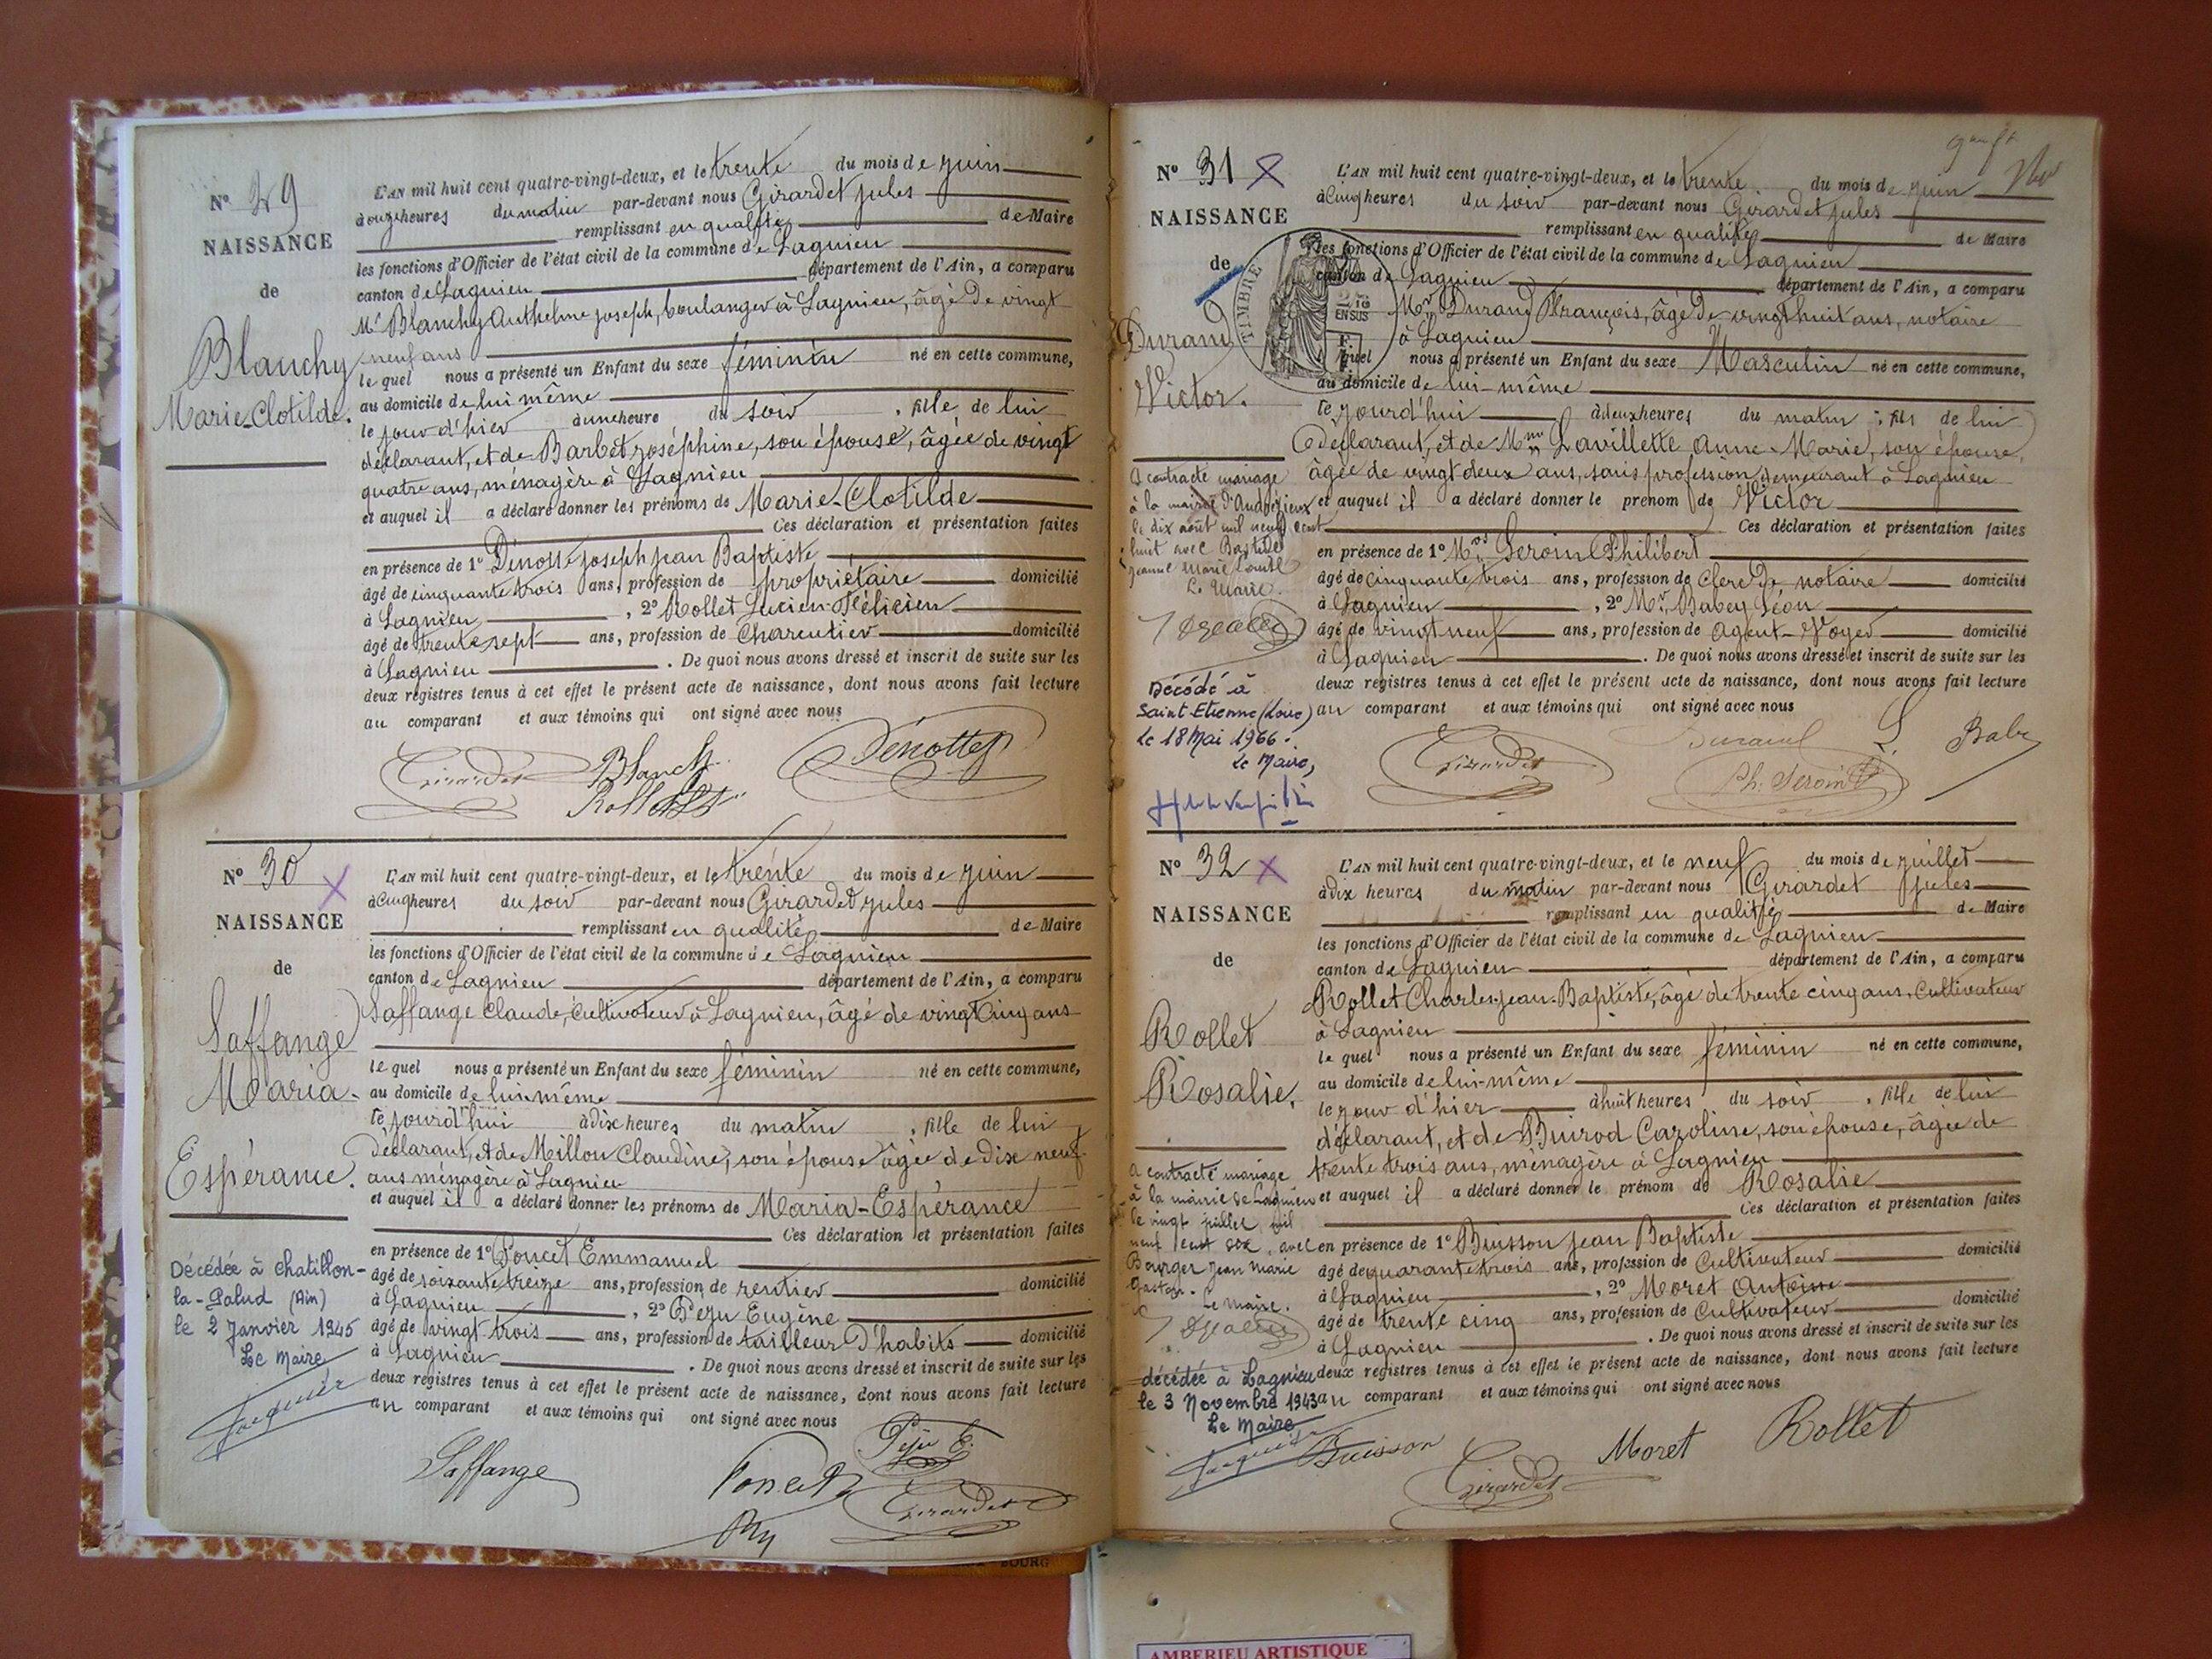 N° 29
NAISSANCE
de
Blanchy
Marie-Clotilde.
L'AN mil huit cent quatre-vingt-deux, et le trente du mois de juin
à onze heures du matin par-devant nous Girardet jules
remplissant en qualité de Maire
les fonctions d'Officier de l'état civil de la commune de Lagnieu
canton de Lagnieu département de l'Ain, a comparu
Mr Blanchy Anthelme joseph, boulanger à Lagnieu, âgé de vingt
neuf ans
le quel nous a présenté un Enfant du sexe féminin né en cette commune,
au domicile de lui même
le jour d'hier à une heure du soir , fille de lui
déclarant, et de Barbet joséphine, son épouse, âgée de vingt
quatre ans, ménagère à Lagnieu
et auquel il a déclaré donner les prénoms de Marie-Clotilde
Ces déclaration et présentation faites
en présence de 1° Dénotte joseph jean Baptiste
âgé de cinquante trois ans, profession de propriétaire domicilié
à Lagnieu , 2° Rollet Lucien-Félicien
âgé de trente sept ans, profession de Charcutier domicilié
à Lagnieu . De quoi nous avons dressé et inscrit de suite sur les
deux registres tenus à cet effet le présent acte de naissance, dont nous avons fait lecture
au comparant et aux témoins qui ont signé avec nous
Girardet Blanchy Dénotte
Rollet
N° 30 X
NAISSANCE
de
Saffange
Maria-
Espérance.
L'AN mil huit cent quatre-vingt-deux, et le trente du mois de juin
à Cinq heures du soir par-devant nous Girardet jules
remplissant en qualité de Maire
les fonctions d'Officier de l'état civil de la commune de Lagnieu
canton de Lagnieu département de l'Ain, a comparu
Saffange Claude, Cultivateur à Lagnieu, âgé de vingt Cinq ans
le quel nous a présenté un Enfant du sexe féminin né en cette commune,
au domicile de lui-même
le jourd'hui à dix heures du matin , fille de lui
déclarant, et de Millon Claudine, son épouse âgée de dix neuf
ans ménagère à Lagnieu
et auquel il a déclaré donner les prénoms de Maria-Espérance
Ces déclaration et présentation faites
en présence de 1° Poncet Emmanuel
âgé de soixante treize ans, profession de rentier domicilié
à Lagnieu , 2° Peju Eugène
âgé de vingt trois ans, profession de tailleur d'habits domicilié
à Lagnieu . De quoi nous avons dressé et inscrit de suite sur les
deux registres tenus à cet effet le présent acte de naissance, dont nous avons fait lecture
au comparant et aux témoins qui ont signé avec nous
Décédée à Chatillon-
la-Palud (Ain)
le 2 Janvier 1945
Le Maire
Saffange Poncet Péju E.
Girardet
N° 31 X
NAISSANCE
de
Durand
Victor.
TIMBRE
EN SUS
L'AN mil huit cent quatre-vingt-deux, et le trente du mois de juin
à Cinq heures du soir par-devant nous Girardet jules
remplissant en qualité de Maire
les fonctions d'Officier de l'état civil de la commune de Lagnieu
canton de Lagnieu département de l'Ain, a comparu
Mr Durand François, âgé de vingt huit ans, notaire
à Lagnieu
le quel nous a présenté un Enfant du sexe Masculin né en cette commune,
au domicile de lui-même
le jourd'hui à deux heures du matin , fils de lui
déclarant, et de Mme Lavillette Anne-Marie, son épouse,
âgée de vingt deux ans, sans profession, demeurant à Lagnieu
et auquel il a déclaré donner le prénom de Victor
Ces déclaration et présentation faites
en présence de 1° Mrs Seroin Philibert
âgé de cinquante trois ans, profession de Clerc de notaire domicilié
à Lagnieu , 2° Mr Babey Léon
âgé de vingt neuf ans, profession de Agent-Voyer domicilié
à Lagnieu . De quoi nous avons dressé et inscrit de suite sur les
deux registres tenus à cet effet le présent acte de naissance, dont nous avons fait lecture
au comparant et aux témoins qui ont signé avec nous
A contracté mariage
à la mairie d'Andrézieux
le dix août mil neuf cent
huit avec Bastide
Jeanne Marie
Le Maire.
Décédé à
Saint-Etienne (Loire)
Le 18 Mai 1966.
Le Maire,
Girardet Durand Babey
Ph. Seroin
N° 32 X
NAISSANCE
de
Rollet
Rosalie.
L'AN mil huit cent quatre-vingt-deux, et le neuf du mois de juillet
à dix heures du matin par-devant nous Girardet jules
remplissant en qualité de Maire
les fonctions d'Officier de l'état civil de la commune de Lagnieu
canton de Lagnieu département de l'Ain, a comparu
Rollet Charles-Jean-Baptiste, âgé de trente cinq ans, Cultivateur
à Lagnieu
le quel nous a présenté un Enfant du sexe féminin né en cette commune,
au domicile de lui-même
le jour d'hier à huit heures du soir , fille de lui
déclarant, et de Burod Caroline, son épouse, âgée de
trente trois ans, ménagère à Lagnieu
et auquel il a déclaré donner le prénom de Rosalie
Ces déclaration et présentation faites
en présence de 1° Buisson Jean Baptiste
âgé de quarante trois ans, profession de Cultivateur domicilié
à Lagnieu , 2° Moret Antoine
âgé de trente cinq ans, profession de Cultivateur domicilié
à Lagnieu . De quoi nous avons dressé et inscrit de suite sur les
deux registres tenus à cet effet le présent acte de naissance, dont nous avons fait lecture
au comparant et aux témoins qui ont signé avec nous
A contracté mariage
à la mairie de Lagnieu
le vingt juillet mil
neuf cent six, avec
Bourger Jean Marie
Gaston.
Le Maire.
décédée à Lagnieu
le 3 Novembre 1943
Le Maire
Buisson Girardet Moret Rollet
BOURG
AMBERIEU ARTISTIQUE